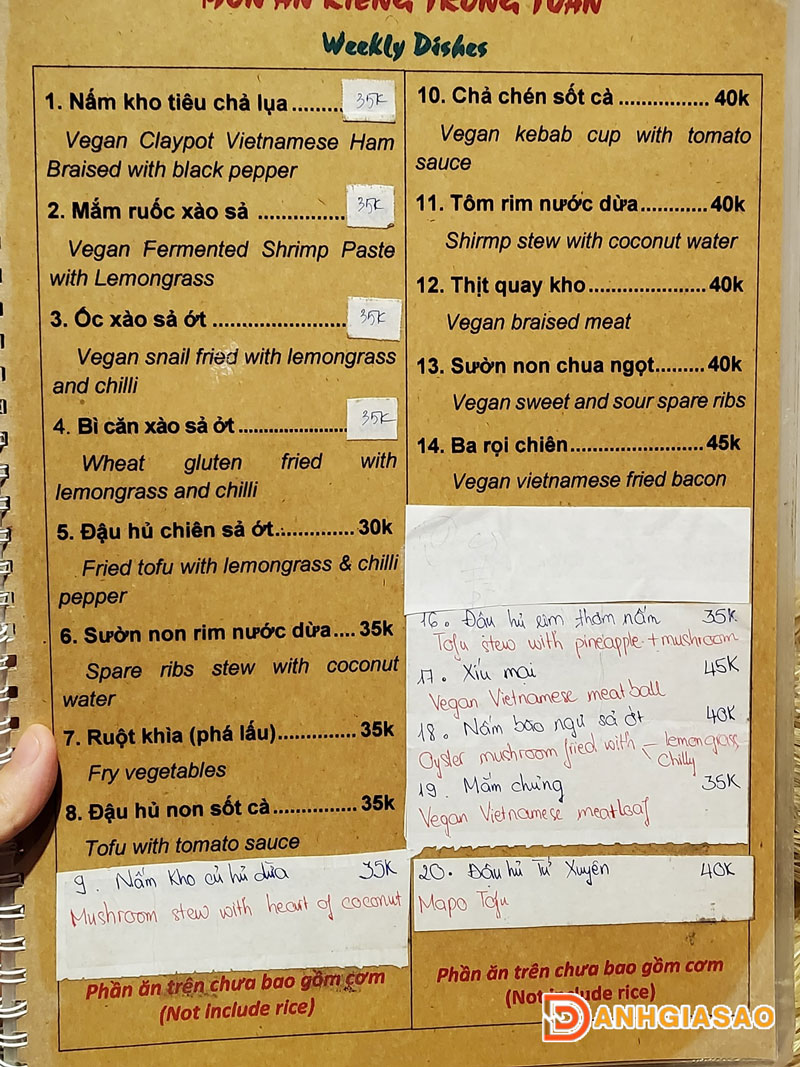 MÓN ĂN RIÊNG TRONG TUẦN
Weekly Dishes
1. Nấm kho tiêu chả lụa ......... 35K
Vegan Claypot Vietnamese Ham
Braised with black pepper
2. Mắm ruốc xào sả ............... 35K
Vegan Fermented Shrimp Paste
with Lemongrass
3. Ốc xào sả ớt ....................... 35K
Vegan snail fried with lemongrass
and chilli
4. Bì căn xào sả ởt ................... 35K
Wheat gluten fried with
lemongrass and chilli
5. Đậu hủ chiên sả ớt.............. 30k
Fried tofu with lemongrass & chilli
pepper
6. Sườn non rim nước dừa.... 35k
Spare ribs stew with coconut
water
7. Ruột khìa (phá lấu).............. 35k
Fry vegetables
8. Đậu hủ non sốt cà ............... 35k
Tofu with tomato sauce
9. Nấm kho củ hủ dừa 35K
Mushroom stew with heart of coconut
Phần ăn trên chưa bao gồm cơm
(Not include rice)
10. Chả chén sốt cà ................ 40k
Vegan kebab cup with tomato
sauce
11. Tôm rim nước dừa............ 40k
Shirmp stew with coconut water
12. Thịt quay kho..................... 40k
Vegan braised meat
13. Sườn non chua ngọt......... 40k
Vegan sweet and sour spare ribs
14. Ba rọi chiên........................ 45k
Vegan vietnamese fried bacon
16. Đậu hủ rim thơm nấm 35K
Tofu stew with pineapple + mushroom
17. Xíu mại 45K
Vegan Vietnamese meatball
18. Nấm bào ngư sả ớt 40K
Oyster mushroom fried with - lemongrass
Chilly
19. Mắm chưng 35K
Vegan Vietnamese meatloaf
20. Đậu hủ Tứ Xuyên 40K
Mapo Tofu
Phần ăn trên chưa bao gồm cơm
(Not include rice)
DANHGIASAO